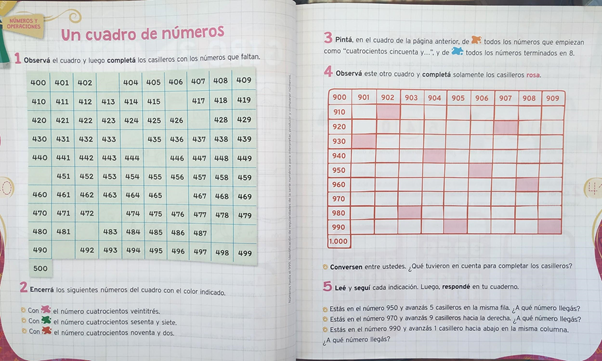 NÚMEROS Y
OPERACIONES
Un cuadro de números
1 Observá el cuadro y luego completá los casilleros con los números que faltan.
400 401 402 404 405 406 407 408 409
410 411 412 413 414 415 417 418 419
420 421 422 423 424 425 426 428 429
430 431 432 433 435 436 437 438 439
440 441 442 443 444 446 447 448 449
451 452 453 454 455 456 457 458 459
460 461 462 463 464 465 467 468 469
470 471 472 474 475 476 477 478 479
480 481 483 484 485 486 487
490 492 493 494 495 496 497 498 499
500
2 Encerrá los siguientes números del cuadro con el color indicado.
Con el número cuatrocientos veintitrés.
Con el número cuatrocientos sesenta y siete.
Con el número cuatrocientos noventa y dos.
3 Pintá, en el cuadro de la página anterior, de todos los números que empiezan
como "cuatrocientos cincuenta y...", y de todos los números terminados en 8.
4 Observá este otro cuadro y completá solamente los casilleros rosa.
900 901 902 903 904 905 906 907 908 909
910
920
930
940
950
960
970
980
990
1.000
Conversen entre ustedes. ¿Qué tuvieron en cuenta para completar los casilleros?
5 Leé y seguí cada indicación. Luego, respondé en tu cuaderno.
Estás en el número 950 y avanzás 5 casilleros en la misma fila. ¿A qué número llegás?
Estás en el número 970 y avanzás 9 casilleros hacia la derecha. ¿A qué número llegás?
Estás en el número 990 y avanzás 1 casillero hacia abajo en la misma columna.
¿A qué número llegás?